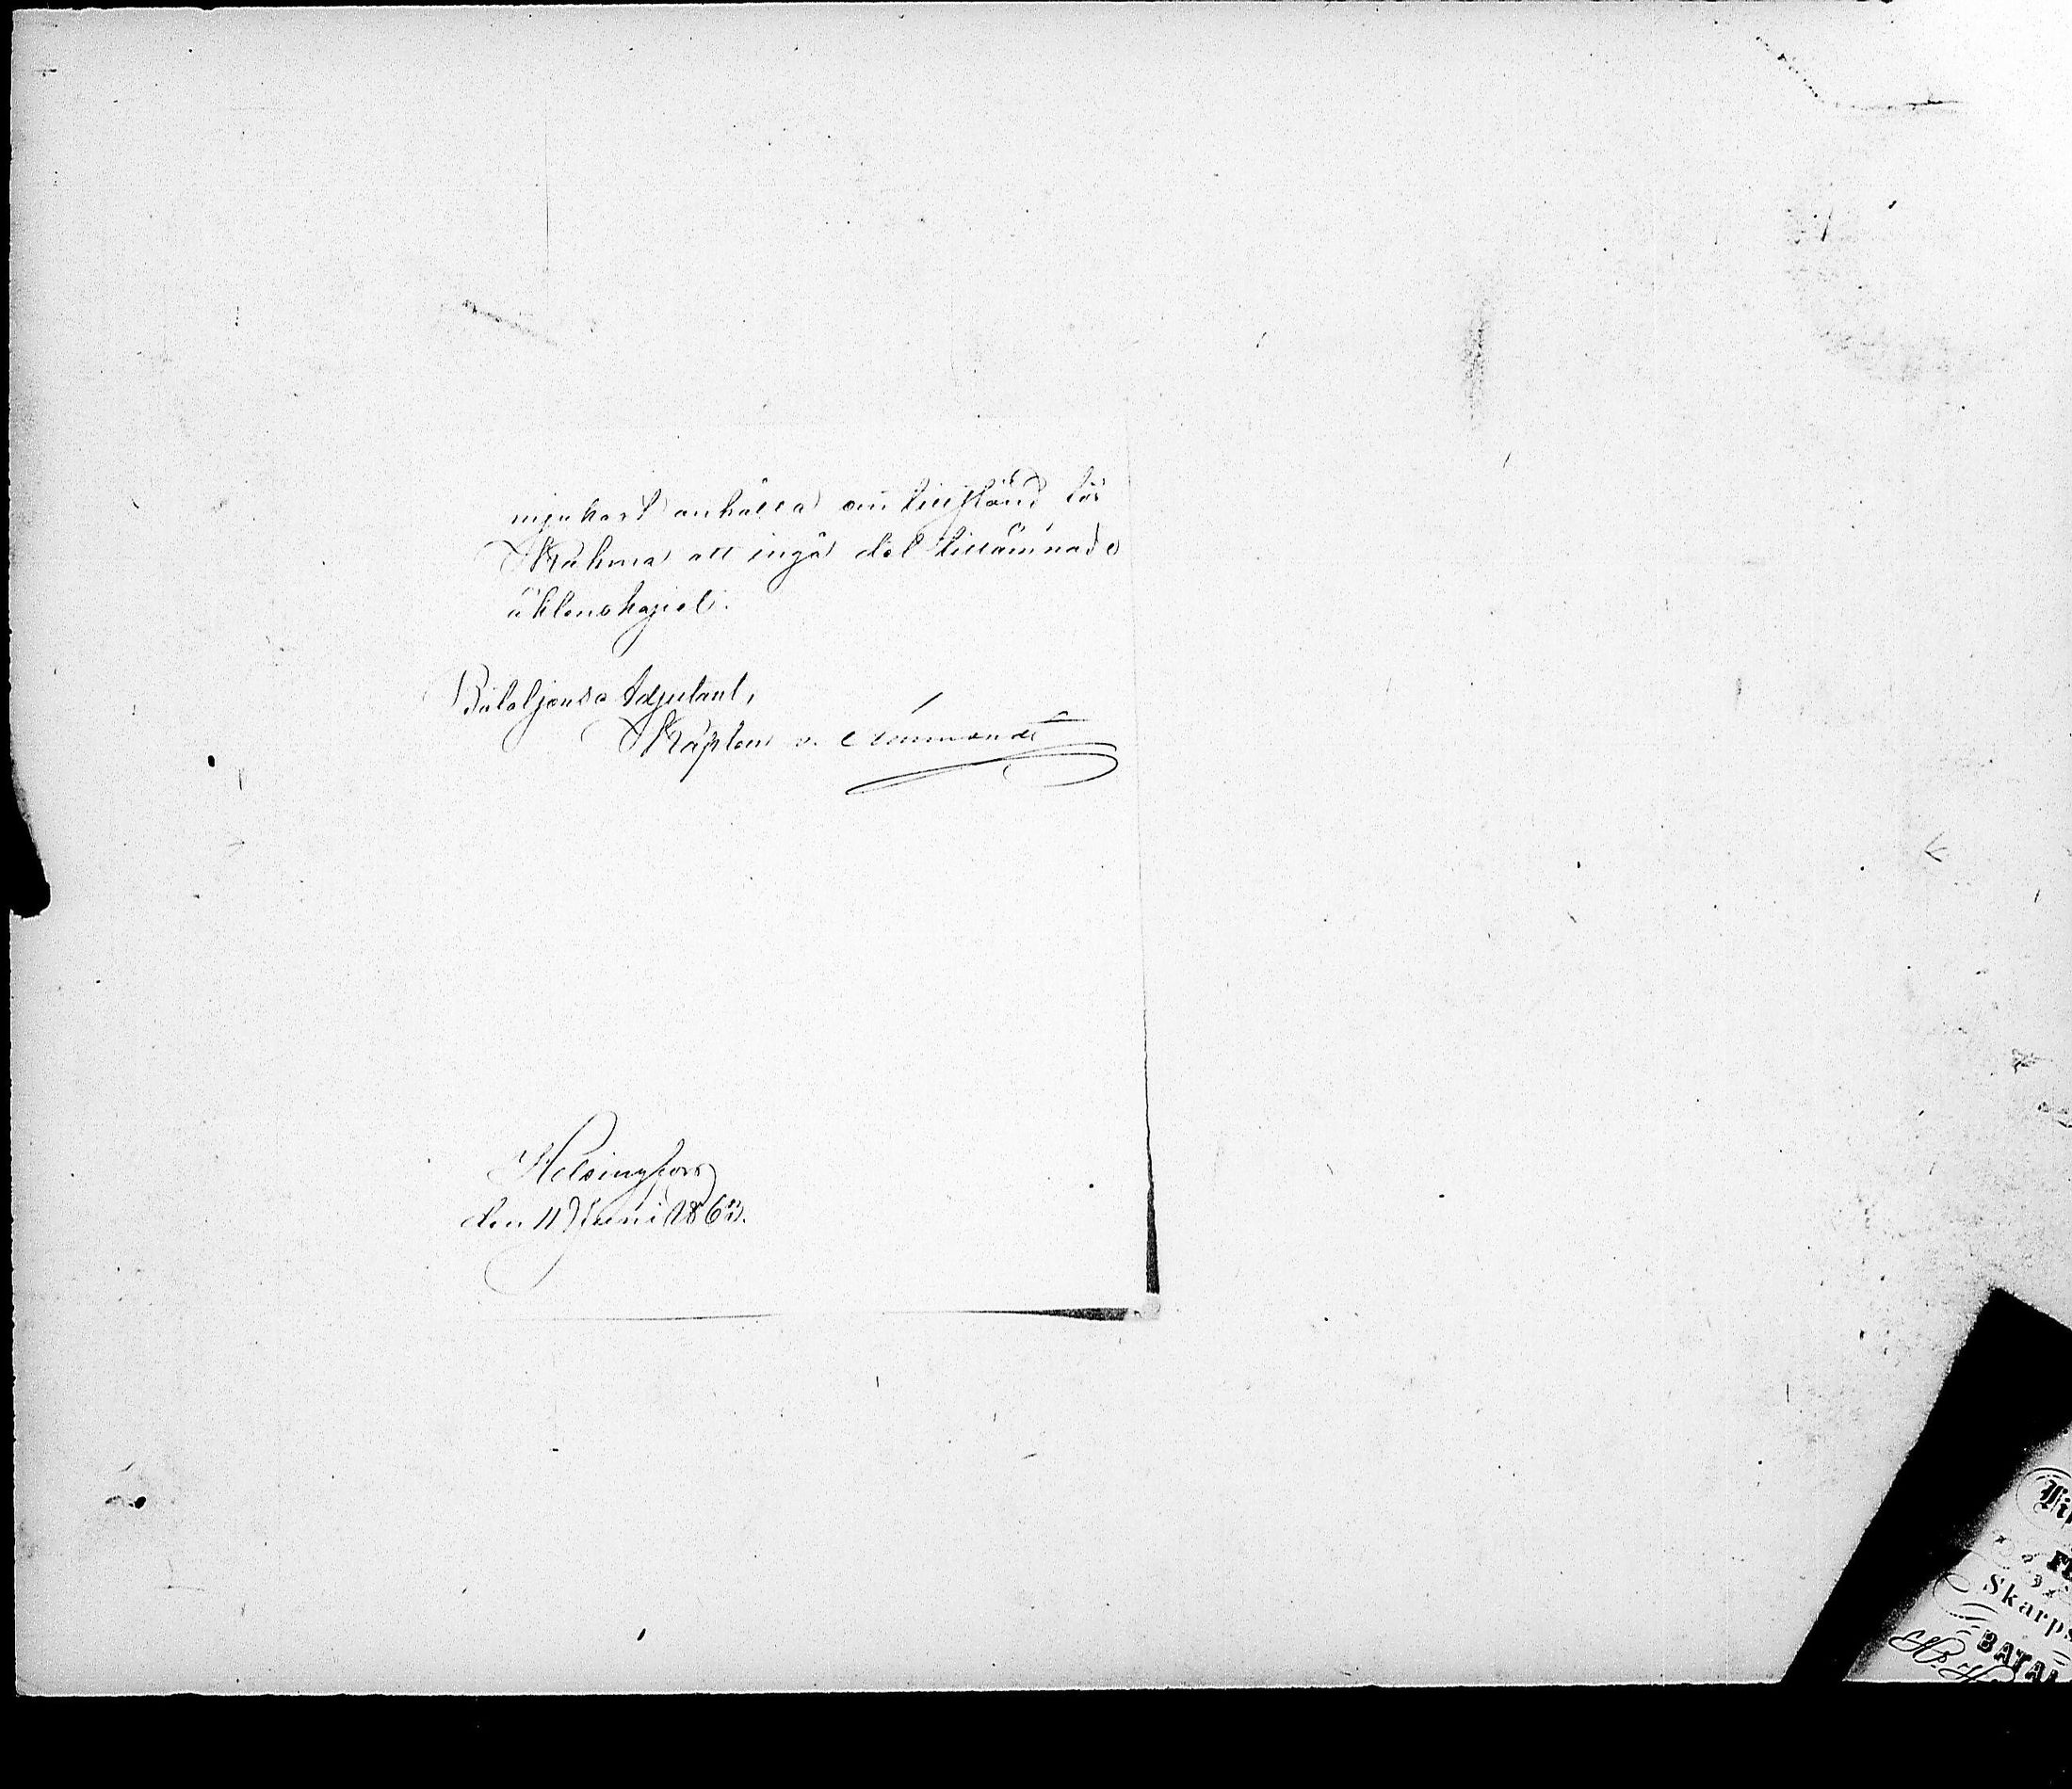 mjukast anhålla om tillstånd för
Kuhma att ingå det tillämnade
äktenskapet.
Bataljons Adjutant,
Kapten v. Kræmer
Helsingfors
den 11 Juni 1862.
Fi
Skarps
BATAL